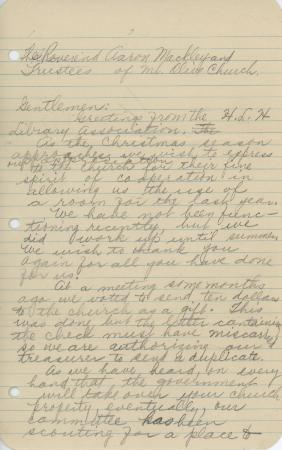 The Reverend Aaron Mackley and
Trustees of Mt. Olive Church.
Gentlemen:
Greeting from the H. L. H
Library Association. The
As the Christmas season
approaches we wish to express
to the Church for their fine
spirit of co operation in
allowing us the use of
a room for the last year.
We have not been func-
tioning recently, but we
did work up until summer
We wish to thank you
again for all you have done
for us.
At a meeting some months
ago, we voted to send ten dollars
to the church as a gift. This
was done but the letter containing
the check must have miscarried
so we are authorizing our
treasurer to send a duplicate.
As we have heard, on every
hand that, the government
will take over your church
property, eventually, our
committee has been
scouting for a place to